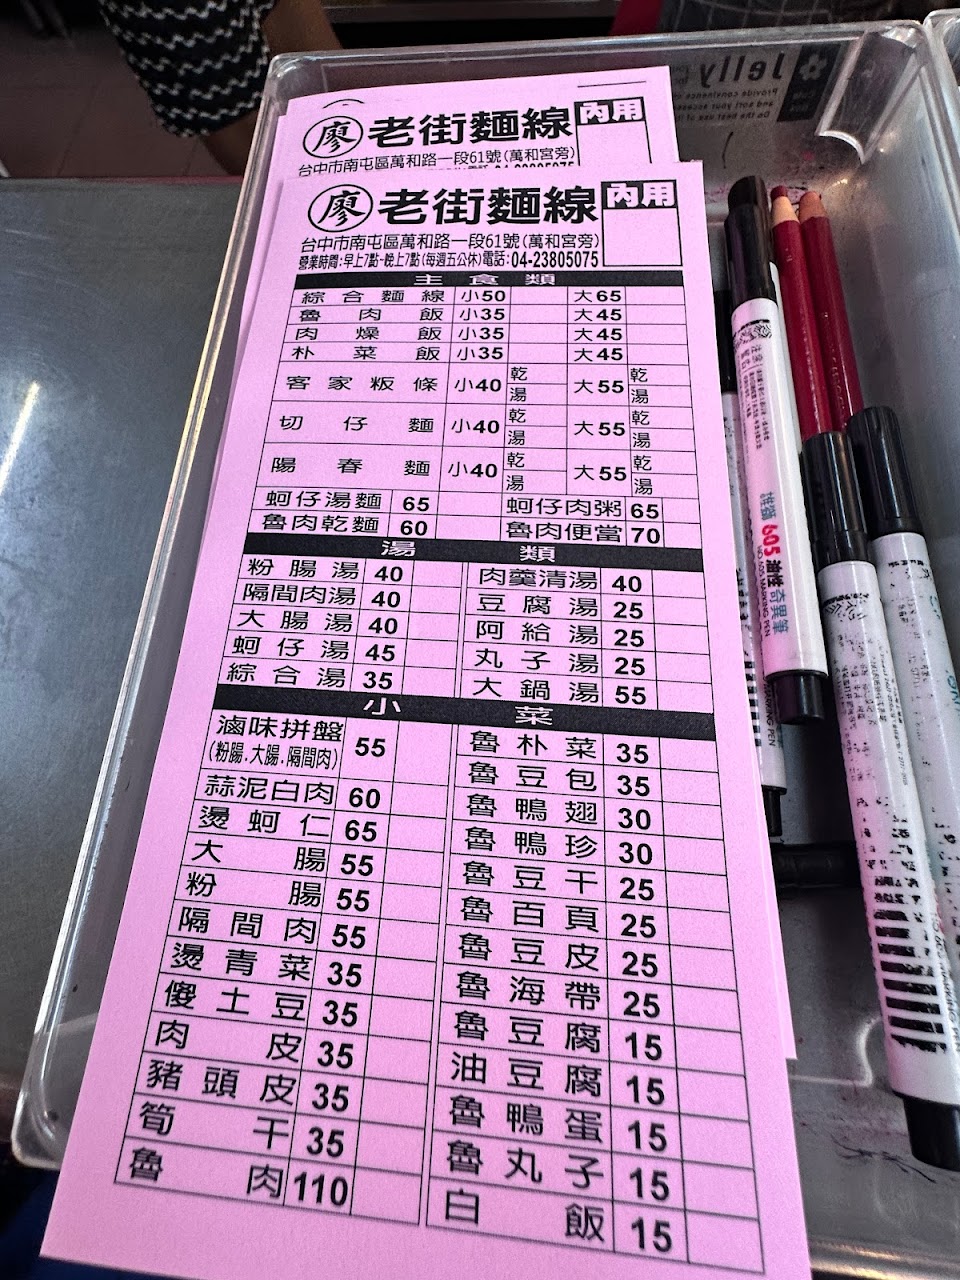 廖 老街麵線 內用
台中市南屯區萬和路一段61號(萬和宮旁)
廖 老街麵線 內用
台中市南屯區萬和路一段61號(萬和宮旁)
營業時間:早上7點~晚上7點(每週五公休)電話:04-23805075
主食類
綜合麵線 小50 大65
魯肉飯 小35 大45
肉燥飯 小35 大45
朴菜飯 小35 大45
客家粄條 小40 乾 湯 大55 乾 湯
切仔麵 小40 乾 湯 大55 乾 湯
陽春麵 小40 乾 湯 大55 乾 湯
蚵仔湯麵 65 蚵仔肉粥 65
魯肉乾麵 60 魯肉便當 70
湯類
粉腸湯 40 肉羹清湯 40
隔間肉湯 40 豆腐湯 25
大腸湯 40 阿給湯 25
蚵仔湯 45 丸子湯 25
綜合湯 35 大鍋湯 55
小菜
滷味拼盤 55 魯朴菜 35
(粉腸.大腸.隔間肉) 魯豆包 35
蒜泥白肉 60 魯鴨翅 30
燙蚵仁 65 魯鴨珍 30
大腸 55 魯豆干 25
粉腸 55 魯百頁 25
隔間肉 55 魯豆皮 25
燙青菜 35 魯海帶 25
傻土豆 35 魯豆腐 15
肉皮 35 油豆腐 15
豬頭皮 35 魯鴨蛋 15
筍干 35 魯丸子 15
魯肉 110 白飯 15
Jelly
雄獅 605 油性奇異筆
NO. 605 MARKING PEN